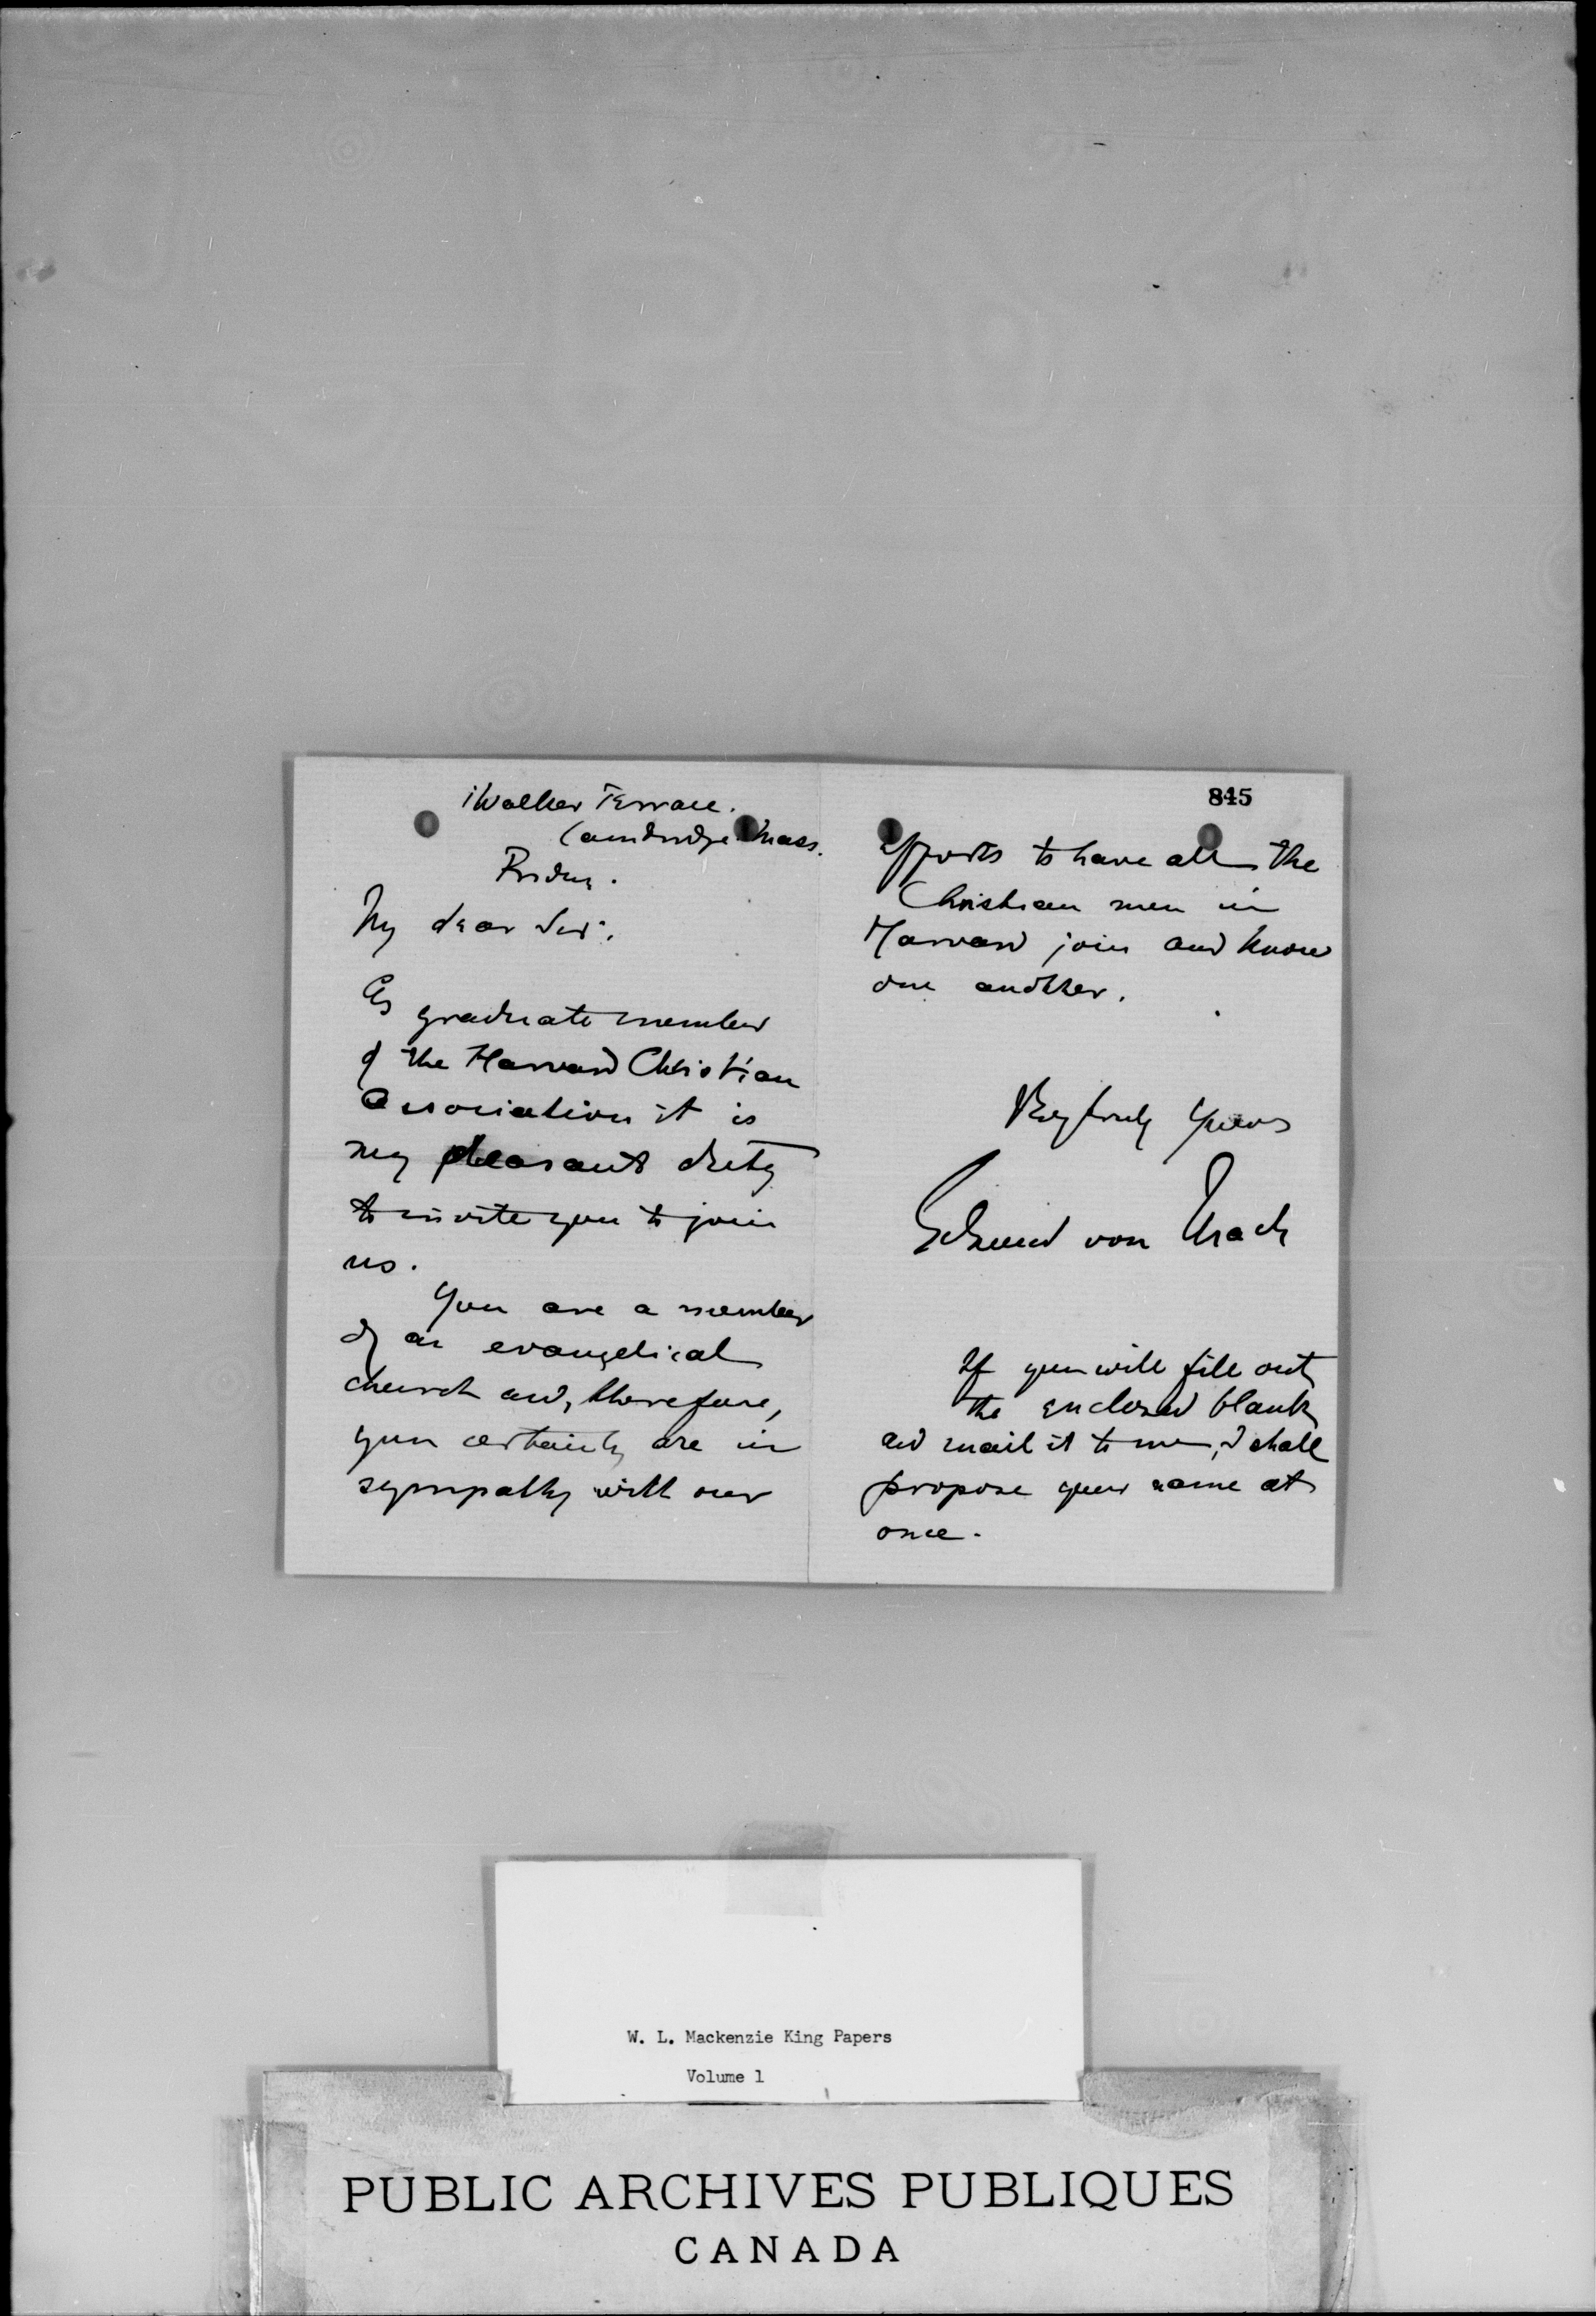 1 Walker Terrace.
Cambridge Mass.
Friday.
My dear Sir:
As graduate member
of the Harvard Christian
Association it is
my pleasant duty
to invite you to join
us.
You are a member
of an evangelical
church and, therefore,
you certainly are in
sympathy with our
845
efforts to have all the
Christian men in
Harvard join and know
one another.
Very truly yours
von Urach
If you will fill out
the enclosed blank
and mail it to me, I shall
propose your name at
once.
W. L. Mackenzie King Papers
Volume 1
PUBLIC ARCHIVES PUBLIQUES
CANADA